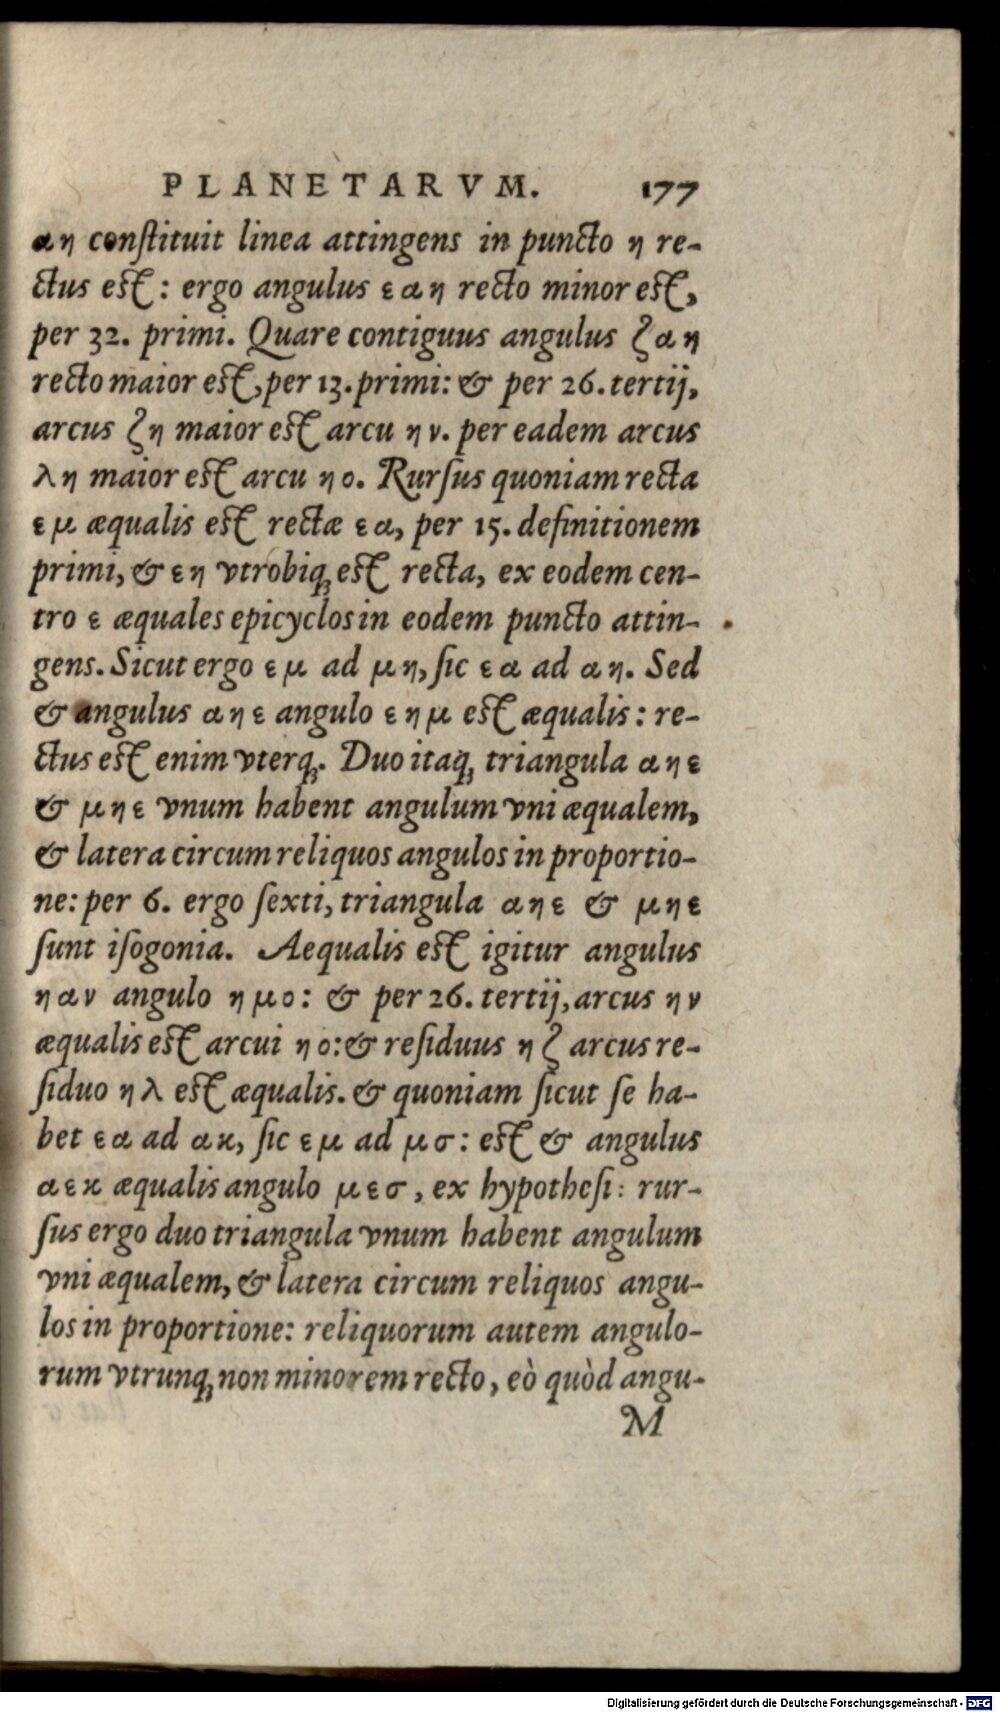 PLANETARVM. 177
αη conſtituit linea attingens in puncto η re-
ctus eſt: ergo angulus εαη recto minor eſt,
per 32. primi. Quare contiguus angulus ζαη
recto maior eſt, per 13. primi: & per 26. tertij,
arcus ζη maior eſt arcu ην. per eadem arcus
λη maior eſt arcu ηο. Rurſus quoniam recta
εμ æqualis eſt rectæ εα, per 15. definitionem
primi, & εη vtrobiq; eſt recta, ex eodem cen-
tro ε æquales epicyclos in eodem puncto attin-
gens. Sicut ergo εμ ad μη, ſic εα ad αη. Sed
& angulus αηε angulo εημ eſt æqualis: re-
ctus eſt enim vterq;. Duo itaq; triangula αηε
& μηε vnum habent angulum vni æqualem,
& latera circum reliquos angulos in proportio-
ne: per 6. ergo ſexti, triangula αηε & μηε
ſunt iſogonia. Aequalis eſt igitur angulus
ηαν angulo ημο: & per 26. tertij, arcus ην
æqualis eſt arcui ηο: & reſiduus ηζ arcus re-
ſiduo ηλ eſt æqualis. & quoniam ſicut ſe ha-
bet εα ad ακ, ſic εμ ad μσ: eſt & angulus
αεκ æqualis angulo μεσ, ex hypotheſi: rur-
ſus ergo duo triangula vnum habent angulum
vni æqualem, & latera circum reliquos angu-
los in proportione: reliquorum autem angulo-
rum vtrunq; non minorem recto, eò quòd angu-
M
Digitalisierung gefördert durch die Deutsche Forschungsgemeinschaft - DFG